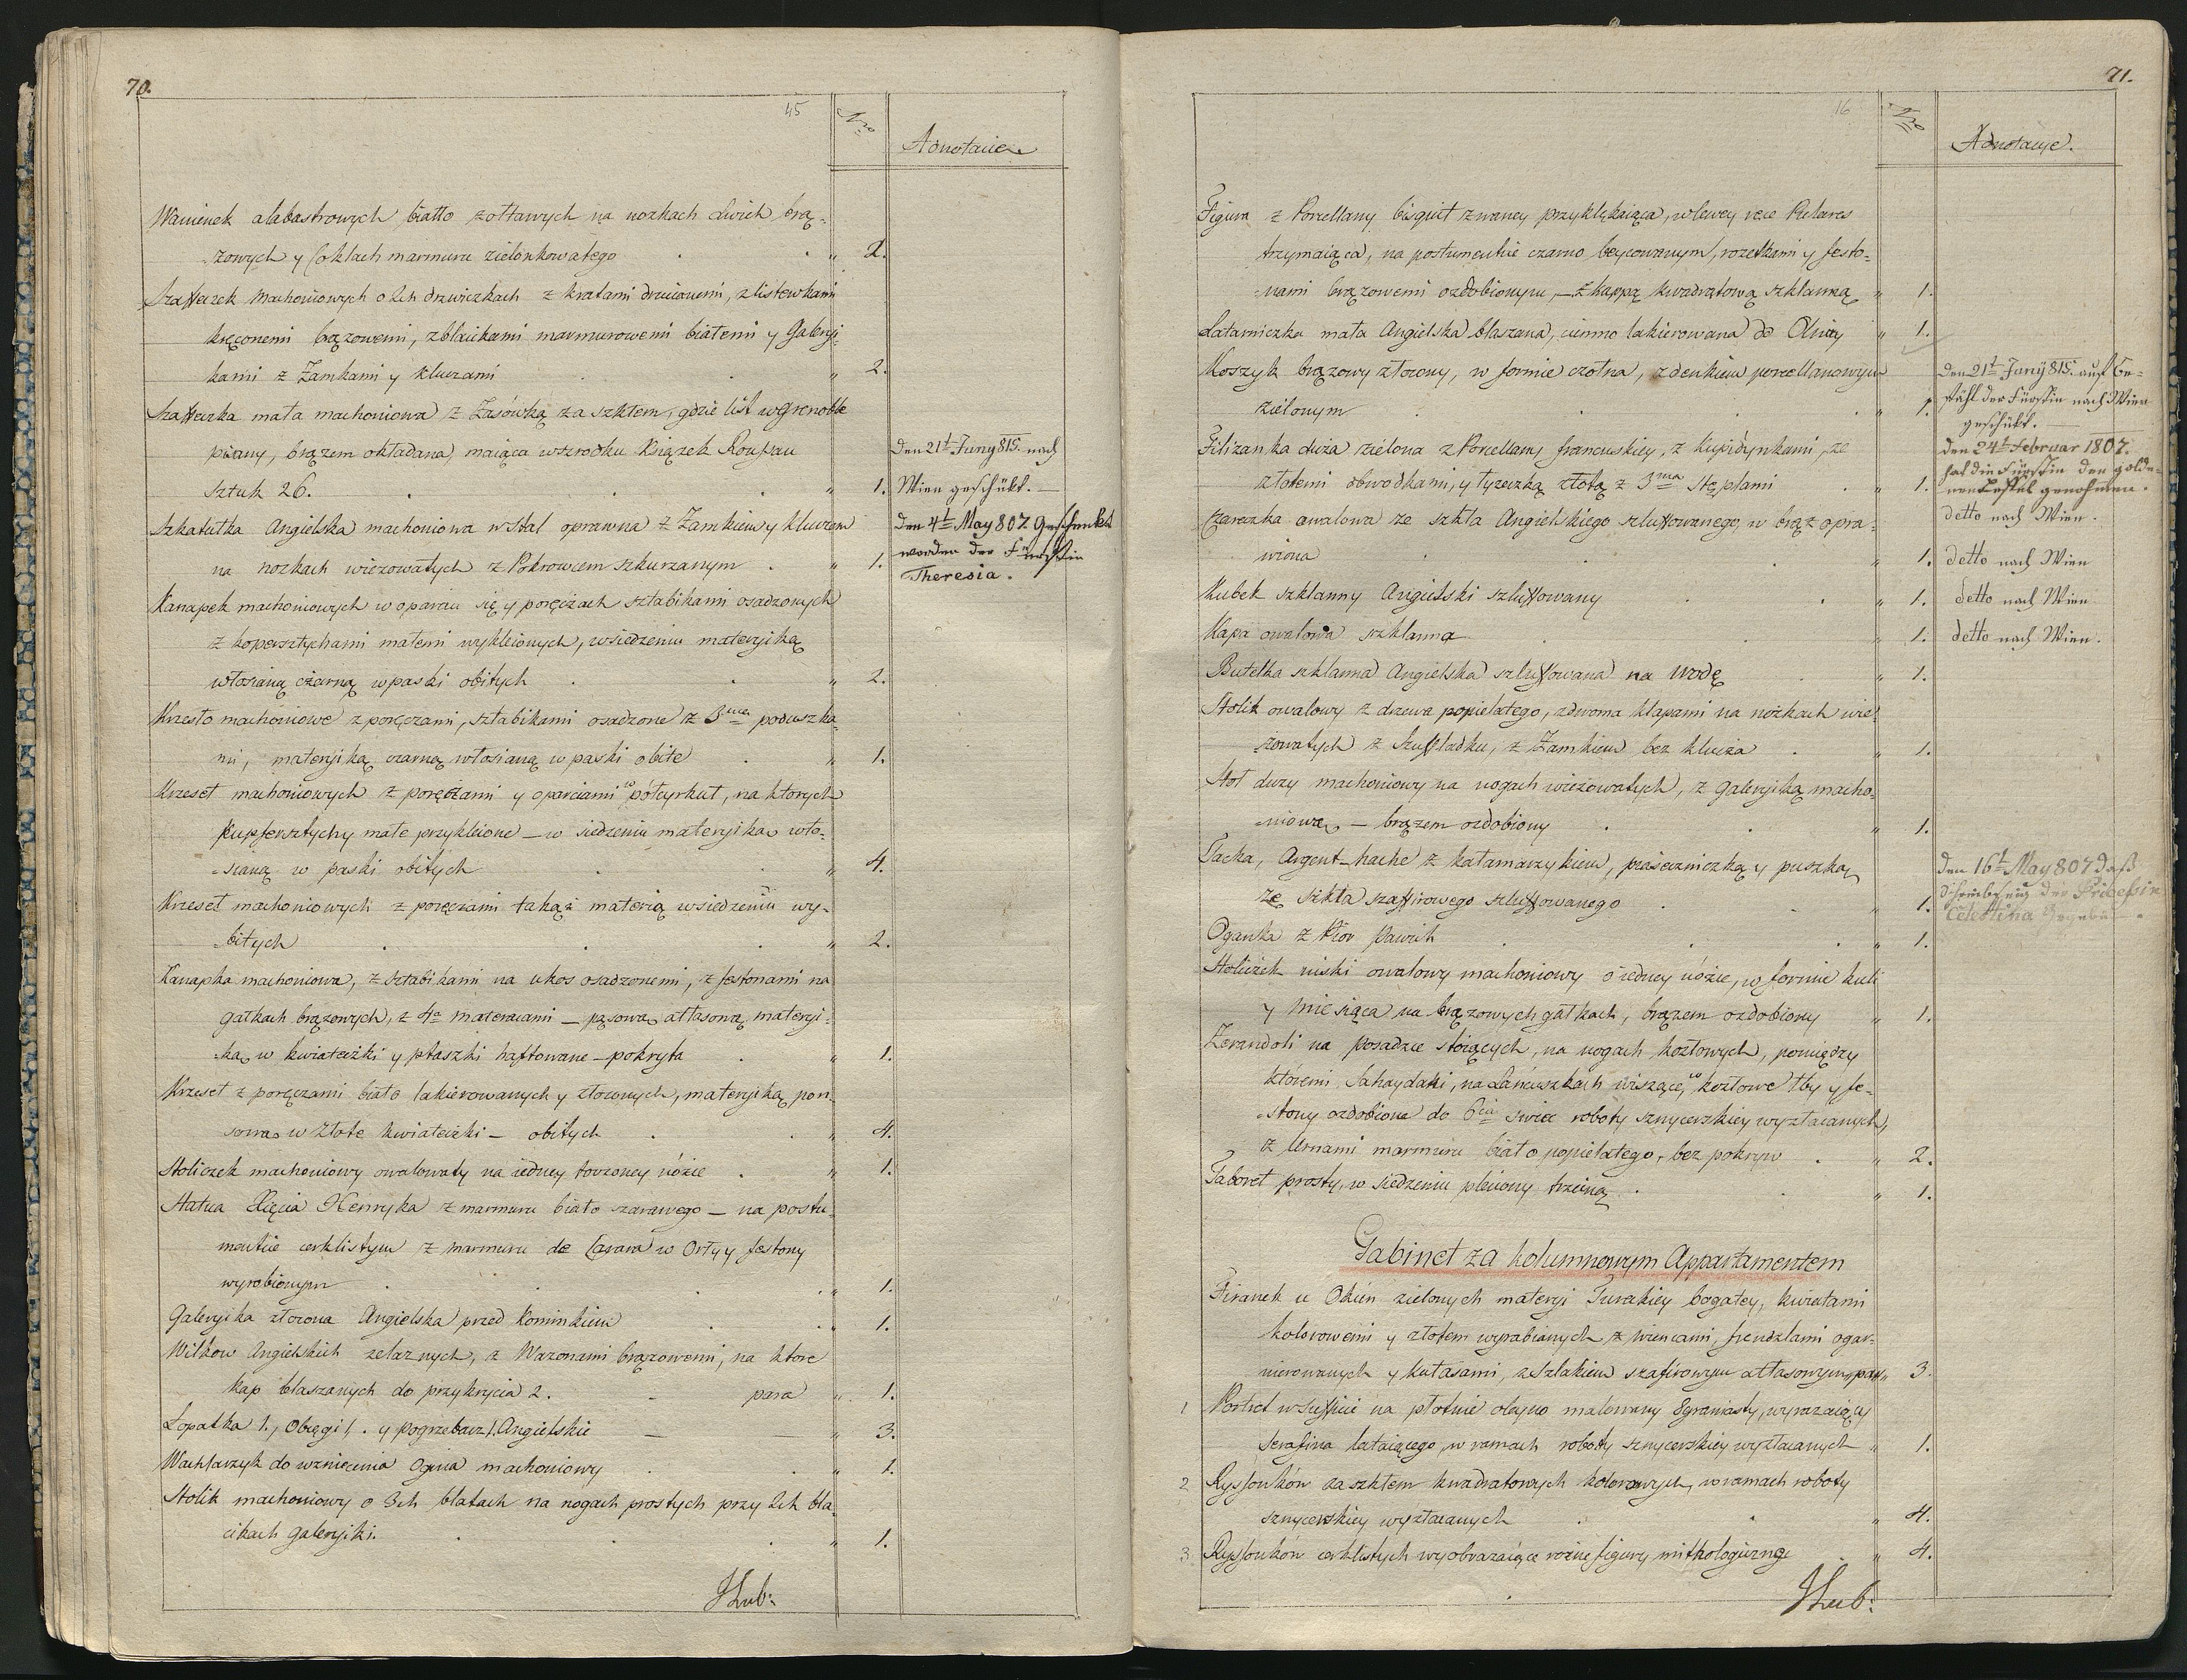 70.
45
Nro
Adnotacie
Wanienek alabastrowych biallo zołtawych na nozkach lwich brą=
zowych y Soklach marmuru zielonkowatego „ 2.
Szaffeczek machoniowych o 2ch drzwiczkach z kratami drucianemi, z listewkami
kręconemi brązowemi, z blacikami marmurowemi białemi y Galeryj-
kami z Zamkami y kluczami „ 2.
Szaffeczka mała machoniowa z Zasówką za szkłem, gdzie list w Grenoble
pisany, brązem okładana, maiąca w szrodku Książek Roussau
Sztuk 26. „ 1.
Den 21t Juny 815. nach
Wien geschükt. —
Szkatułka Angielska machoniowa w Stal oprawna z Zamkiem y kluczem
na nozkach wiezowatych z Pokrowcem szkurzanym . „ 1.
Den 4t May 807. Geschenkt
worden der Fürstin
Theresia.
Kanapek machoniowych w oparciu się y poręczach sztabikami osadzonych
z kopersztychami małemi wykleionych, w siedzeniu materyjką
włosianą czarną w paski obitych „ 2.
Krzesło machoniowe z poręczami, sztabikami osadzone z 3ma poduszka-
mi, materyjką czarną włosianą w paski obite „ 1.
Krzeseł machoniowych z poręczami y oparciami w półcyrkuł, na ktorych
kupfersztychy małe przykleione — w siedzeniu materyjką wło-
sianą w paski obitych „ 4.
Krzeseł machoniowych z poręczami takąż materią w siedzeniu wy-
bitych „ 2.
Kanapka machoniowa, z sztabikami na ukos osadzonemi, z festonami na
gałkach brązowych, z 4a materacami — pąsową attasową materyj-
ką w kwiateczki y ptaszki haftowane — pokryta „ 1.
Krzeseł z poręczami biało lakierowanych y złoconych, materyjką pon-
sową w złote kwiateczki — obitych „ 4.
Stoliczek machoniowy owalowaty na iedney toczoney nóżce „ 1.
Statua Xięcia Henryka z marmuru biało szarawego — na postu-
mencie cerklistym z marmuru de Carara w Orły y festony
wyrobionym „ 1.
Galeryjka złocona Angielska przed Kominkiem „ 1.
Wilków Angielskich zelaznych, z Wazonami brązowemi, na ktore
kap blaszanych do przykrycia 2. para „ 1.
Łopatka 1., Obcęgi 1. y pogrzebacz 1. Angielskie — „ 3.
Wachlarzyk do wzniecenia Ognia machoniowy „ 1.
Stolik machoniowy o 3ch blatach na nogach prostych przy 2ch bla-
cikach galeryjki. „ 1.
71.
16
Nro
Adnotacye.
Figura z Porcellany bisquit zwaney przyklękaiąca, w lewey ręce Pulares
trzymaiąca, na postumencie czarno beycowanym, rozetkami y festo=
nami brązowemi ozdobionym, — z kappą kwadratową szklanną „ 1.
Latarniczka mała Angielska blaszana, ciemno lakierowana do Oliwy „ 1.
Koszyk brązowy złocony, w formie czołna, z denkiem porcellanowym
zielonym „ 1.
Den 21t Juny 815. auf Be-
fähl der Fürstin nach Wien
geschükt. —
Filizanka duża zielona z Porcellany francuskiey, z kupidynkami, ze
złotemi obwodkami, y łyzeczką złotą z 3ma Stęplami „ 1.
Den 24t Februar 1807.
hat die Fürstin den golde-
nen Leffel genohmen.
detto nach Wien.
Czareczka owalowa ze szkła Angielskiego szluffowanego, w brąz opra-
wiona „ 1.
detto nach Wien
Kubek szklanny Angielski szluffowany „ 1.
detto nach Wien
Kapa owalowa szklanna „ 1.
detto nach Wien.
Butelka szklanna Angielska szluffowana na wodę „ 1.
Stolik owalowy z drzewa popielatego, z dwoma klapami na nożkach wie-
żowatych z Szuffladką, z Zamkiem bez klucza „ 1.
Stoł duży machoniowy na nogach wieżowatych, z galeryjką macho-
niową — brązem ozdobiony „ 1.
Tacka, Argent-hache z kałamarzykiem, piaseczniczką y puszką
ze szkła szaffirowego szluffowanego „ 1.
Den 16t May 807 daß
Schreibzeug der Princeßin
Celestina Gegeben
Oganka z Pior Pawich „ 1.
Stoliczek niski owalowy machoniowy o iedney nóżce, w formie kuli
y miesiąca na brązowych gałkach, brązem ozdobiony „ 1.
Zerandoli na posadzce stoiących, na nogach kozłowych, pomiędzy
któremi Sahaydaki, na Łańcuszkach wiszące, w kozłowe łby y fe-
stony ozdobione do 6ciu swiec roboty sznycerskiey wyzłacanych,
z Urnami marmuru biało popielatego, bez pokryw „ 2.
Taboret prosty, w siedzeniu pleciony trzciną „ 1.
Gabinet za kolumnowym Appartamentem
Firanek u Okien zielonych materyi Tureckiey bogatey, kwiatami
kolorowemi y złotem wyrabianych z wiencami, frendzlami ogar-
nierowanych y kutasami, z Szlakiem szafirowym attasowym, par „ 3.
1 Portret w Sufficie na płotnie oleyno malowany 8graniasty, wyrażaiący
Serafina lataiącego, w ramach roboty sznycerskiey wyzłacanych „ 1.
2 Ryssunków za szkłem kwadratowych kolorowych, w ramach roboty
sznycerskiey wyzłacanych „ 4.
3 Ryssunków cerklistych wyobrazaiące rożne figury mithologiczne „ 4.